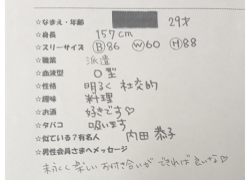 ☆なまえ・年齢 29才
☆身長 157cm
☆スリーサイズ Ⓑ86 Ⓦ60 Ⓗ88
☆職業 派遣
☆血液型 O型
☆性格 明るく 社交的
☆趣味 料理
☆お酒 好きです♡
☆タバコ 吸います
☆似ている?有名人 内田 恭子
☆男性会員さまへメッセージ
末永く楽しいお付き合いができれば良いな♡